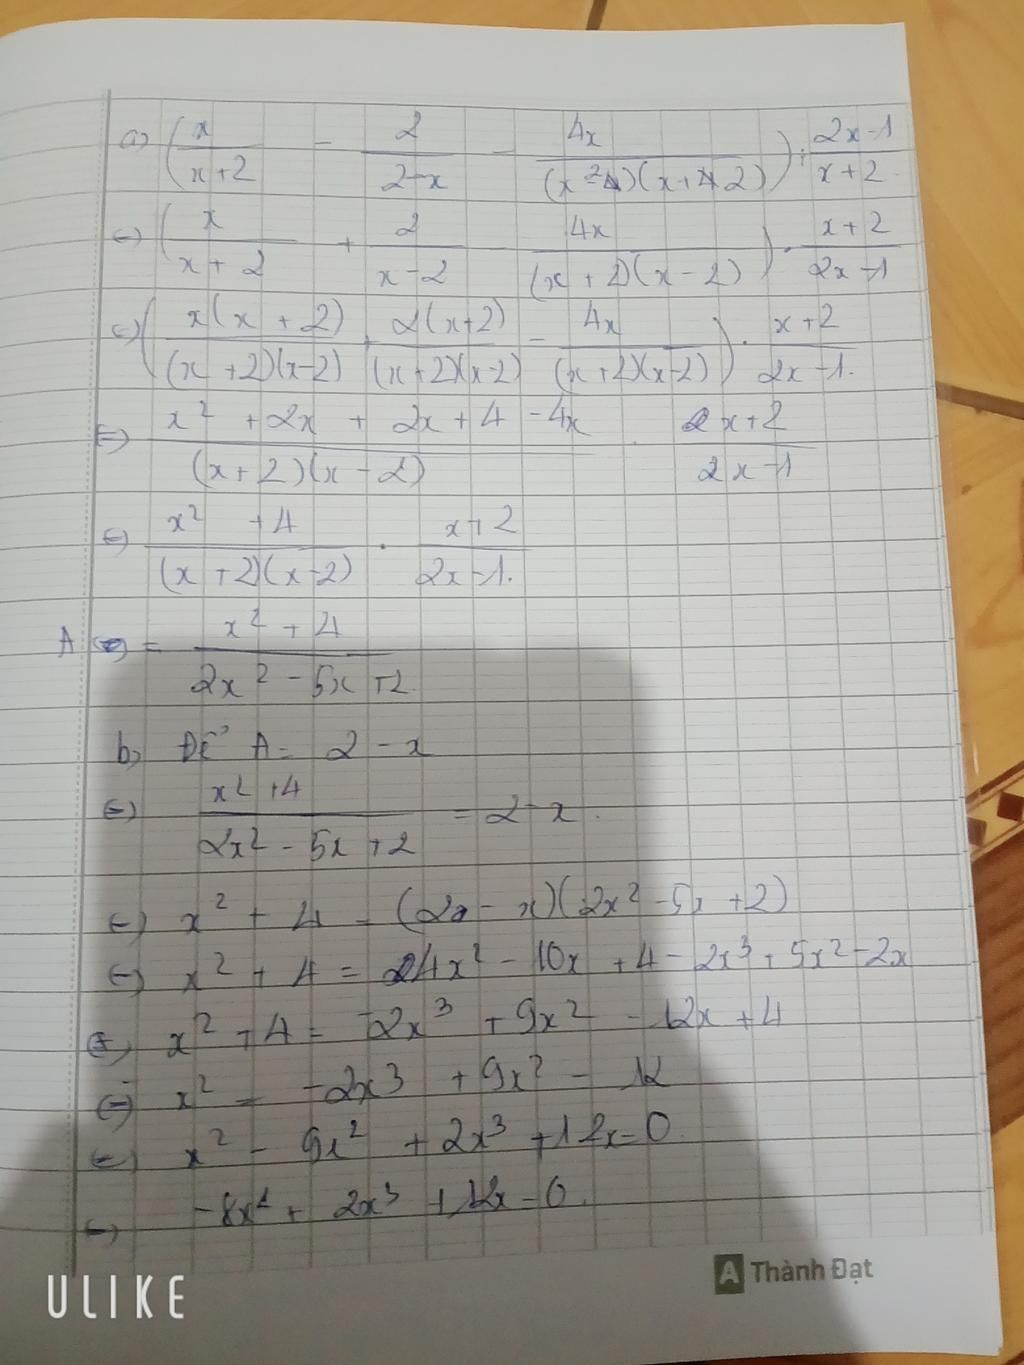 a) (x/(x+2) - 2/(2-x) - 4x/((x-2)(x+2))) : (2x-1)/(x+2)
⇔ (x/(x+2) + 2/(x-2) - 4x/((x+2)(x-2))) . (x+2)/(2x-1)
⇔ (x(x+2)/((x+2)(x-2)) + 2(x+2)/((x+2)(x-2)) - 4x/((x+2)(x-2))) . (x+2)/(2x-1)
⇔ (x² + 2x + 2x + 4 - 4x)/((x+2)(x-2)) . (x+2)/(2x-1)
⇔ (x² + 4)/((x+2)(x-2)) . (x+2)/(2x-1)
A = (x² + 4)/(2x² - 5x + 2)
b) Để A = 2 - x
⇔ (x² + 4)/(2x² - 5x + 2) = 2 - x
⇔ x² + 4 = (2 - x)(2x² - 5x + 2)
⇔ x² + 4 = 4x² - 10x + 4 - 2x³ + 5x² - 2x
⇔ x² + 4 = -2x³ + 9x² - 12x + 4
⇔ x² = -2x³ + 9x² - 12
⇔ x² - 9x² + 2x³ + 12x = 0
⇔ -8x² + 2x³ + 12x = 0
A Thành Đạt
ULIKE